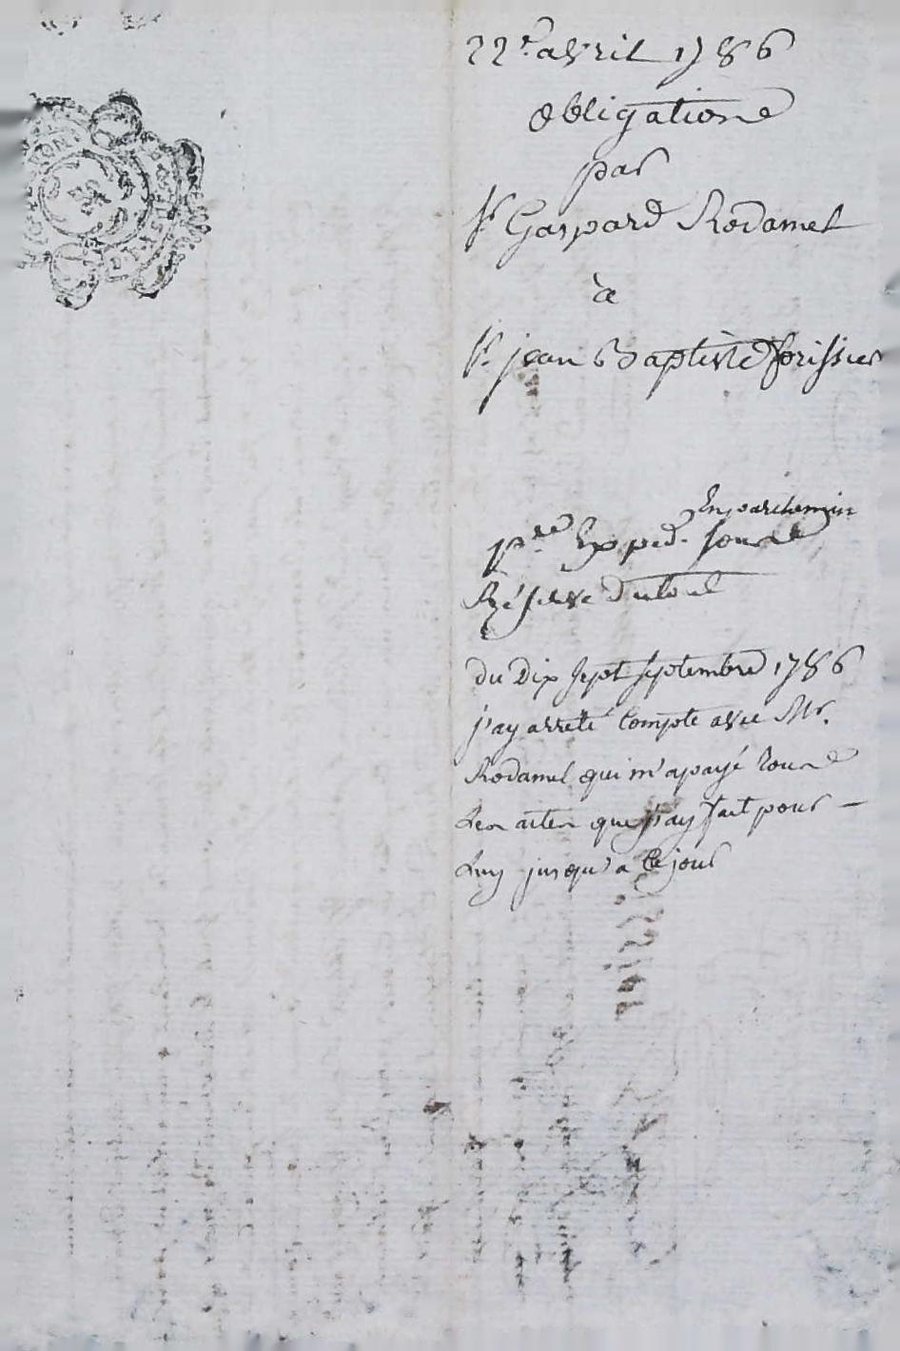 22e. avril 1786
obligation
par
Sr Gaspard Rodamel
à
Sr. jean Baptiste forissier
En parchemin
pre Exped.
Réserve
du Dix sept septembre 1786
j'ay arreté Compte avec Mr.
Rodamel qui m'a payé tous
Les actes que j'ay fait pour
Luy jusqu'a Ce jour